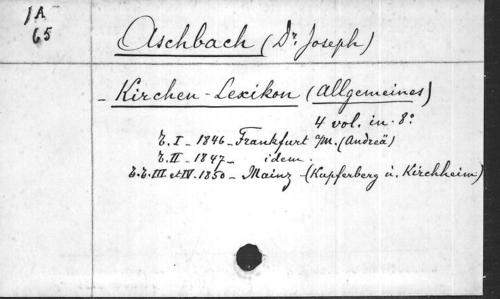 1A
65
Aschbach (Dr Joseph)
- Kirchen-Lexikon (Allgemeines)
4 vol. in-8°
t. I - 1846 - Frankfurt a/M. (Andreä)
t. II - 1847 - idem.
t.t. III et IV - 1850 - Mainz (Kupferberg u. Kirchheim)